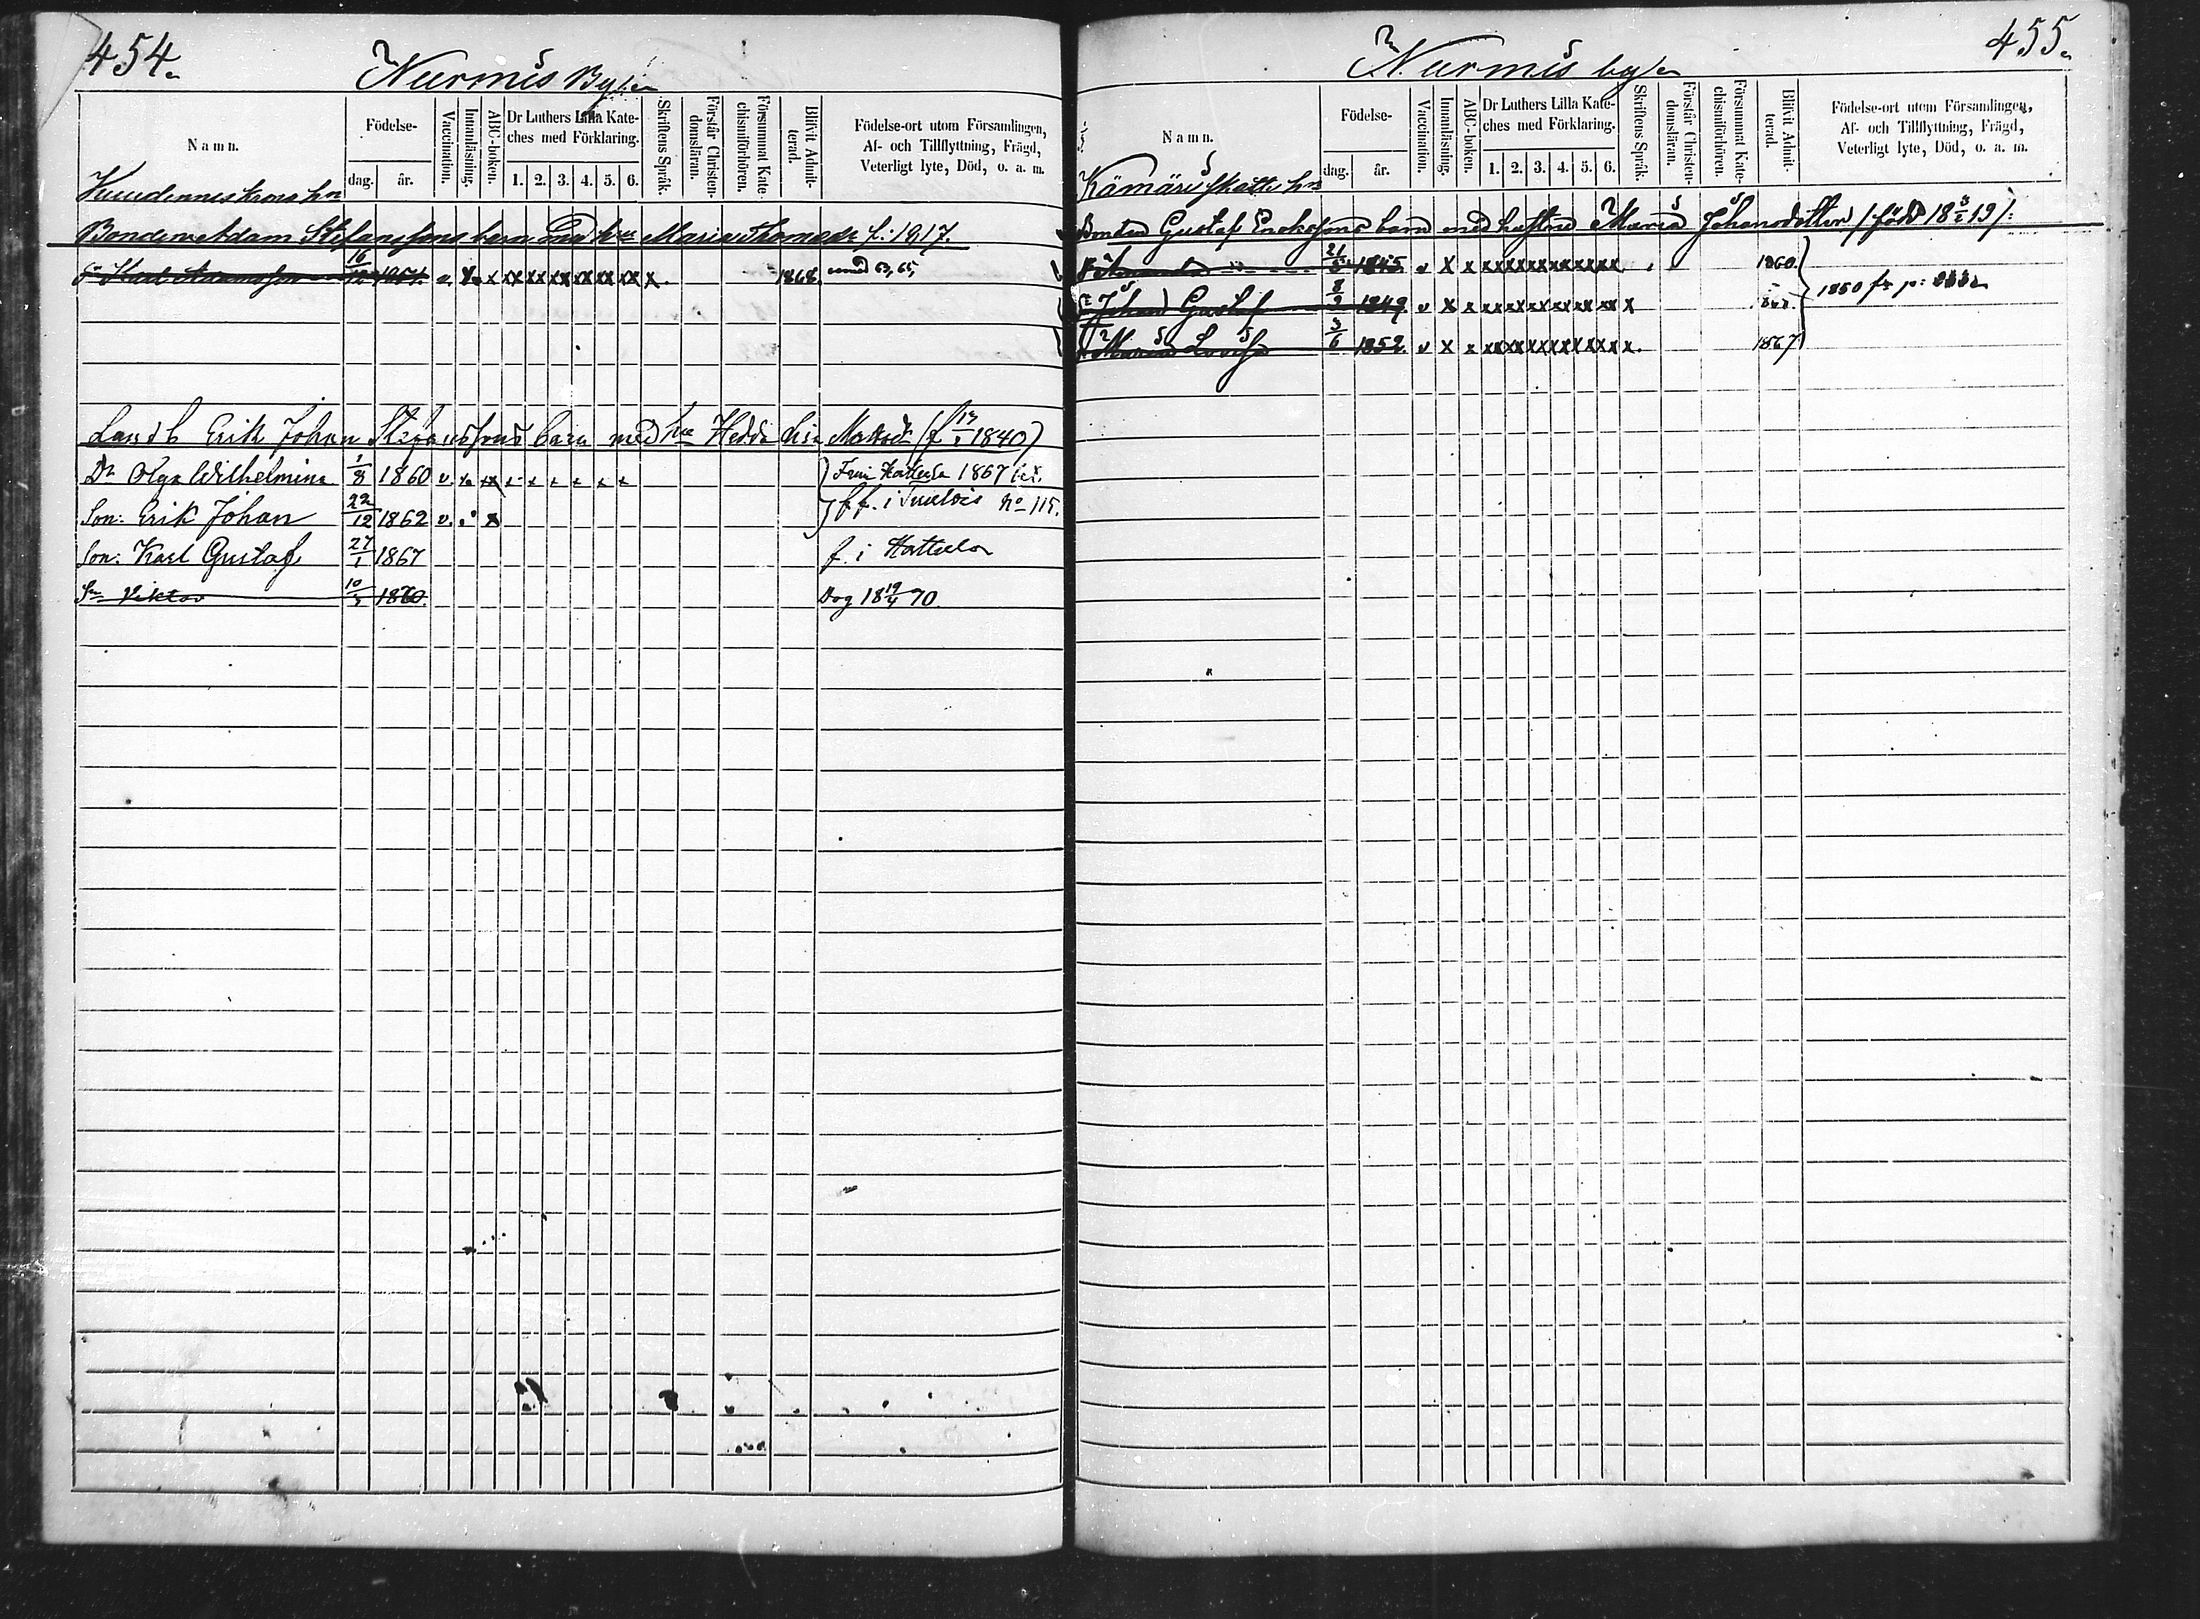 454.
Nurmis By
Namn.
Födelse-
dag. år.
Vaccination.
Innanläsning.
ABC-boken.
Dr Luthers Lilla Kate-
ches med Förklaring.
1. 2. 3. 4. 5. 6.
Skriftens Språk.
Förstår Christen-
domsläran.
Försummat Kate-
chismiförhören.
Blifvit Admit-
terad.
Födelse-ort utom Församlingen,
Af- och Tillflyttning, Frägd,
Veterligt lyte, Död, o. a. m.
Bonden Adam Stefanssons barn med Maria f. 1817.
Karl Adamsson 16/12 1851 1868.
Landb Erik Johan Stefanssons barn med hu Hedda Lisa (f 1840)
Dr Olga Wilhelmina 1/8 1860 v. Från Hattula 1867 bet.
Son: Erik Johan 22/12 1862 v. x f. f. i Tuulois No 115.
Son: Karl Gustaf 27/1 1867 f. i Hattula
Sn Viktor 1870. Dog 18 19/4 70.
455.
Nurmis by
Namn.
Födelse-
dag. år.
Vaccination.
Innanläsning.
ABC-boken.
Dr Luthers Lilla Kate-
ches med Förklaring.
1. 2. 3. 4. 5. 6.
Skriftens Språk.
Förstår Christen-
domsläran.
Försummat Kate-
chismiförhören.
Blifvit Admit-
terad.
Födelse-ort utom Församlingen,
Af- och Tillflyttning, Frägd,
Veterligt lyte, Död, o. a. m.
Kämäri Skatte
Bonden Gustaf Erikssons barn med hustru Maria Johansdotter /: född 18 19 /:
Amanda 21/5 1845 v x x 1860
Johan Gustaf 8/2 1849 v x x 1850 fr p:
Maria Lovisa 3/6 1852 v x x 1867